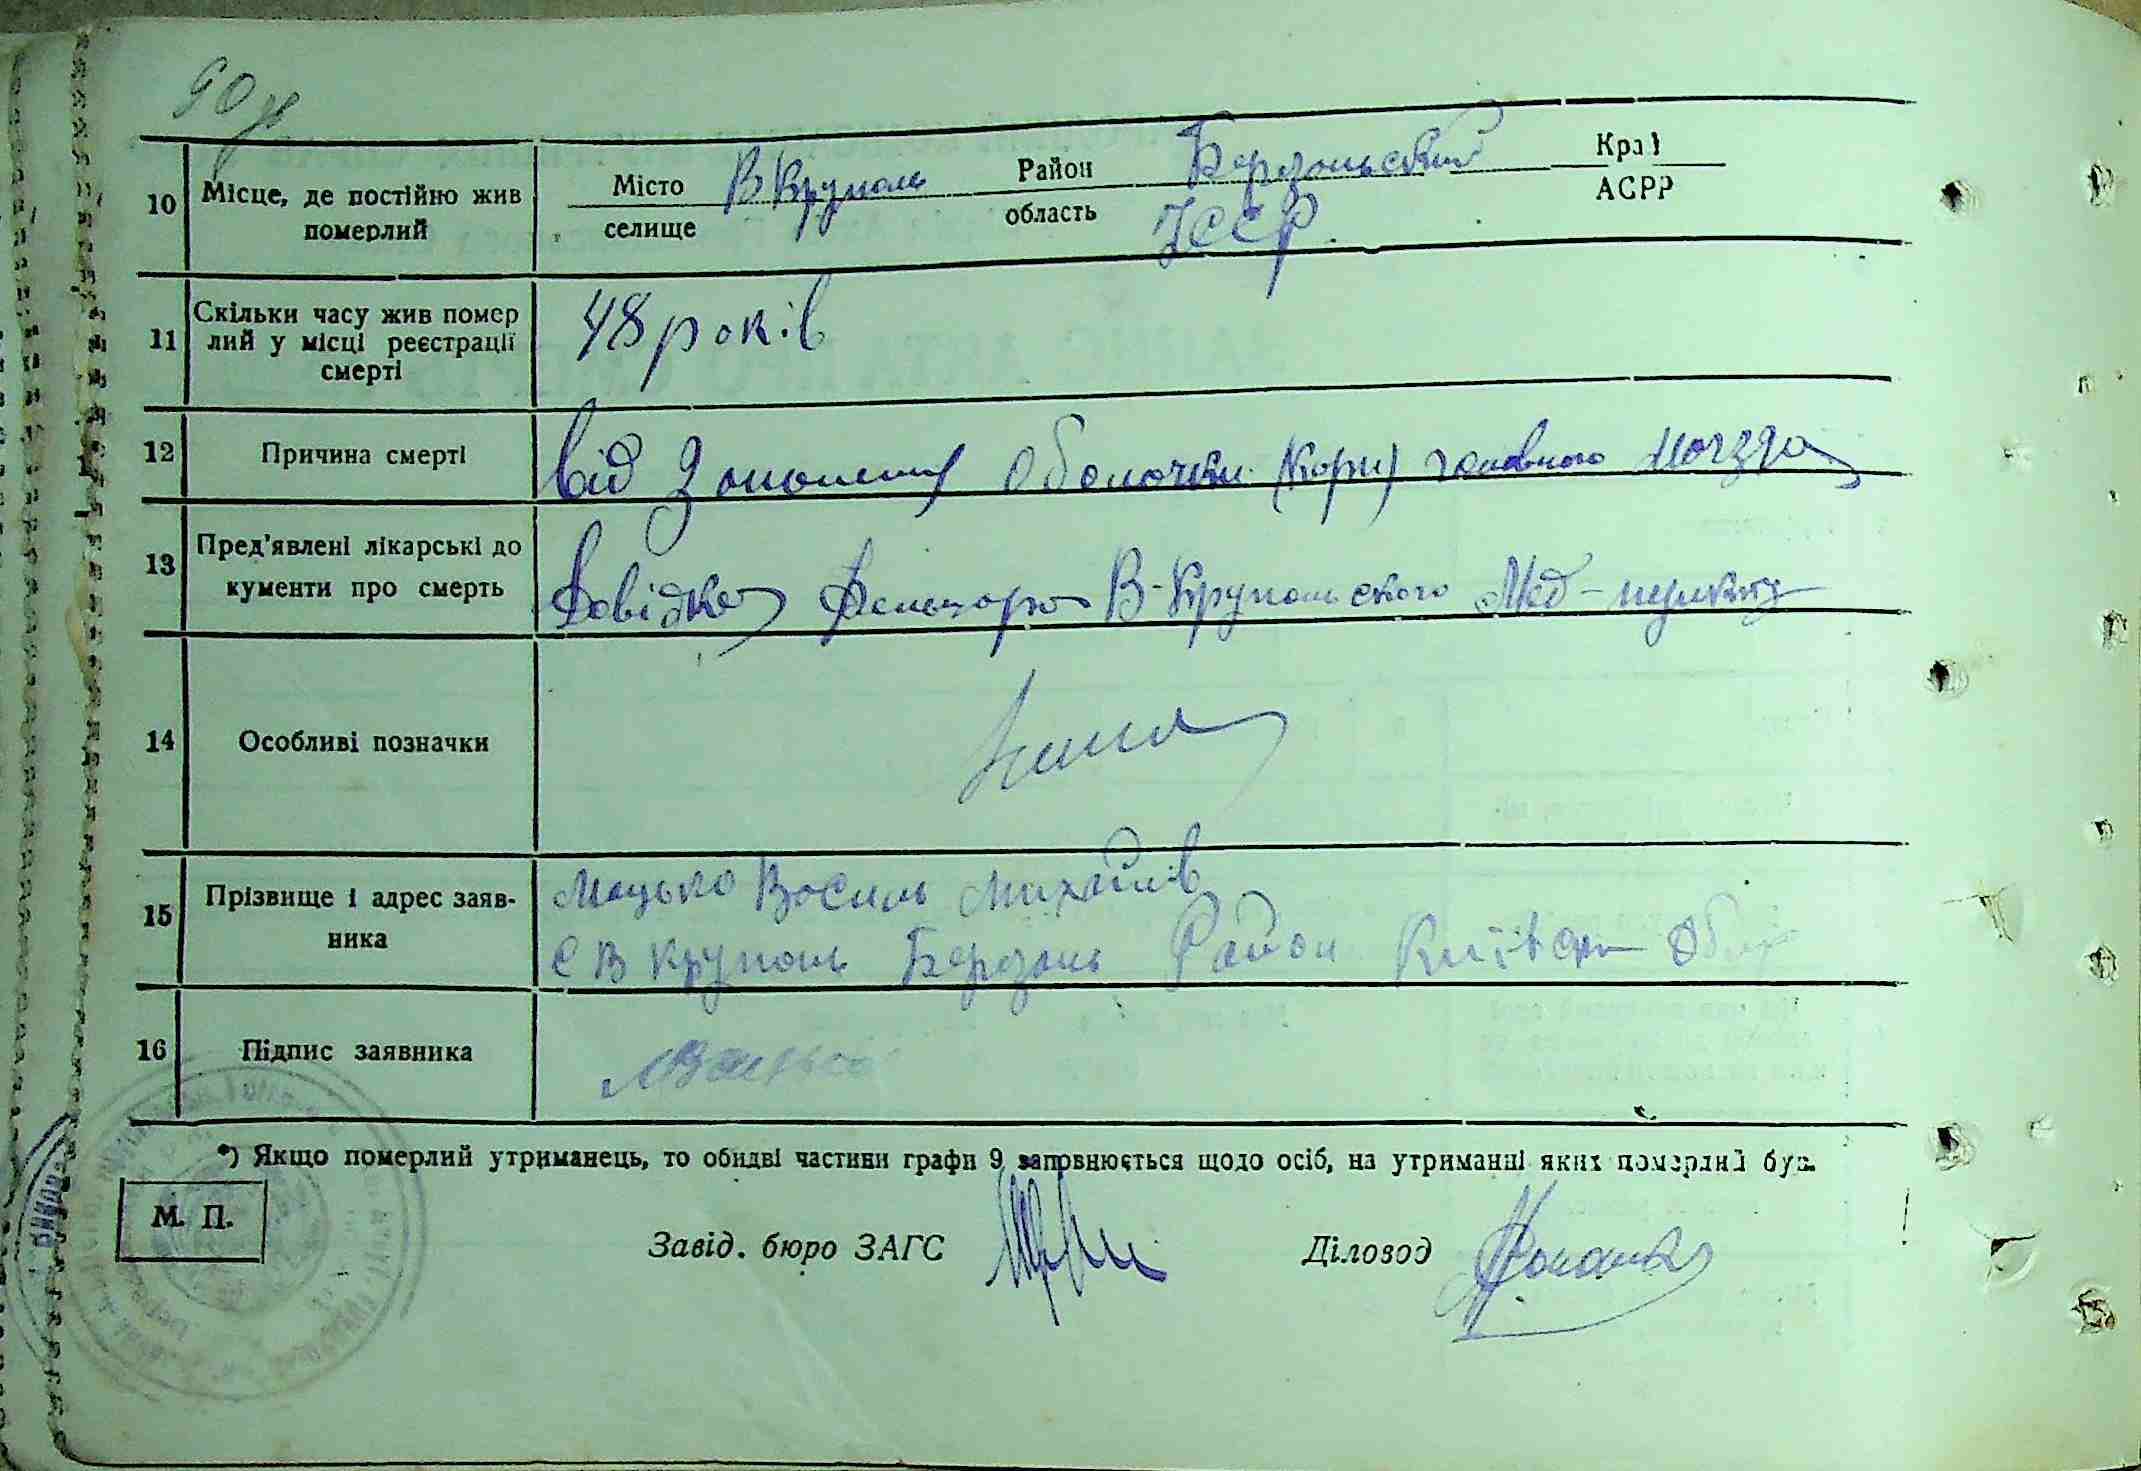 90р
10 Місце, де постійно жив померлий
Місто селище В Круполь Район область Березанський УССР Край АСРР
11 Скільки часу жив помер лий у місці реєстрації смерті
48 років
12 Причина смерті
Від Зопалення Оболочки (кори) головного мозга
13 Пред'явлені лікарські до кументи про смерть
Довідка Фельшора В-Крупольского Мед-пункту
14 Особливі позначки
15 Прізвище і адрес заяв- ника
Мацько Василь Михайлів
с В Круполь Березань Район Київськ Обл
16 Підпис заявника
Мацько
*) Якщо померлий утриманець, то обидві частини графи 9 заповнюється щодо осіб, на утриманні яких померлий був.
М. П.
Завід. бюро ЗАГС
Діловод